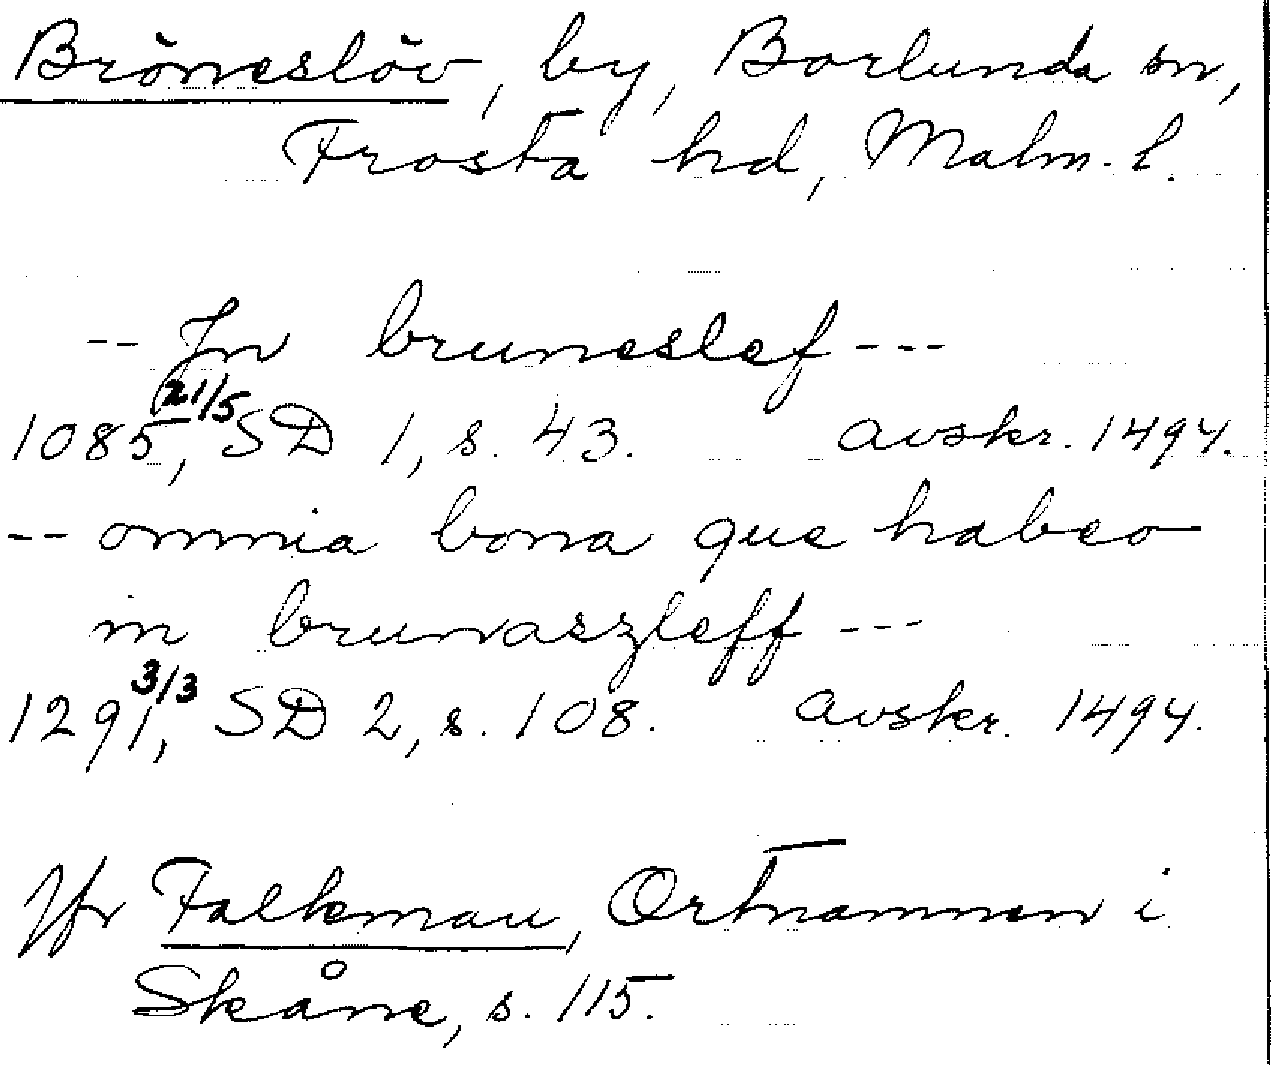 Bröneslöv, by, Borlunda sn,
Frosta hd, Malm. l.
-- Jn bruneslef ---
1085 21/5, SD 1, s. 43. avskr. 1494.
-- omnia bona que habeo
in brunaszleff ---
1291 3/3, SD 2, s. 108. avskr. 1494.
Jfr Falkman, Ortnamnen i
Skåne, s. 115.